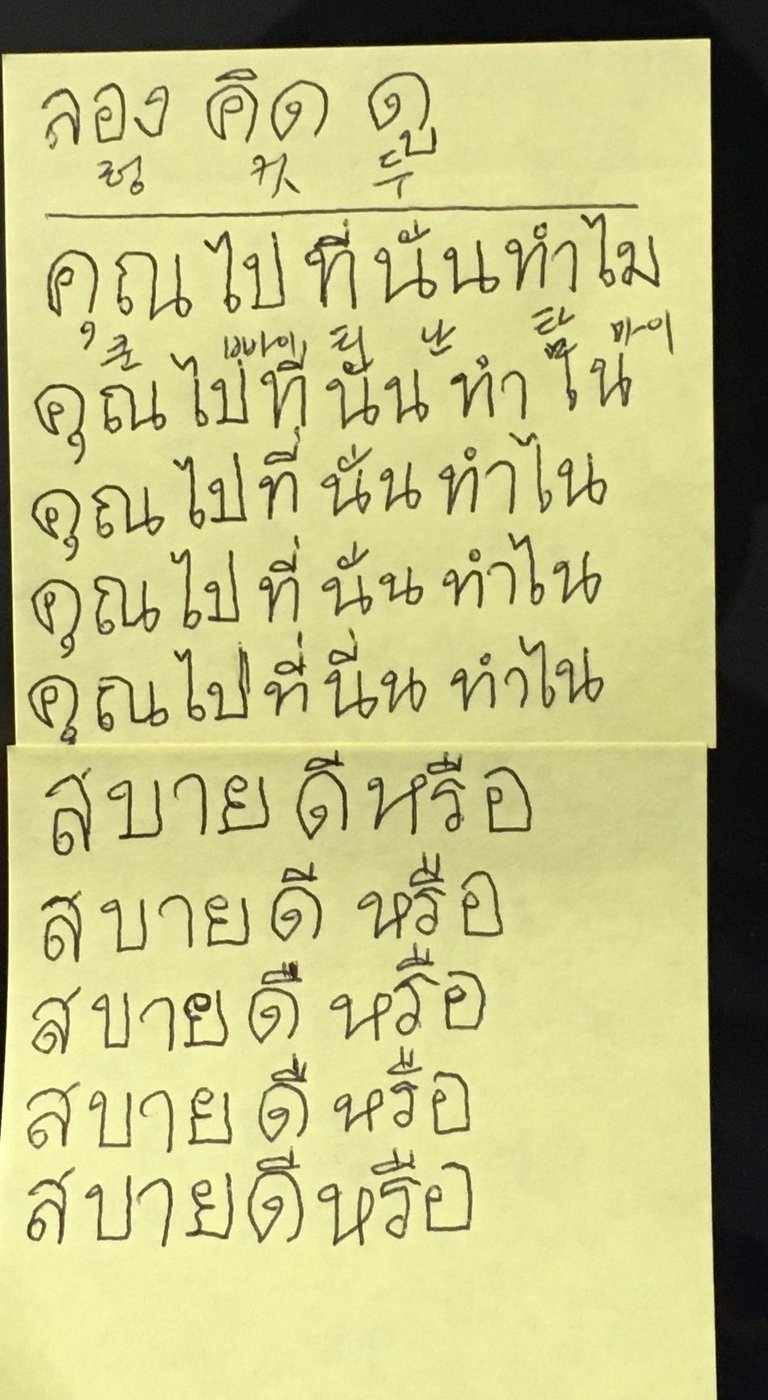 ลอง คิด ดู
렁 킷 두
คุณ ไป ที่ นั่น ทำไม
쿤 빠이 티 난 탐 마이
คุณ ไป ที่ นั่น ทำ ไน
คุณ ไป ที่ นั่น ทำไน
คุณ ไป ที่ นั่น ทำไน
คุณ ไป ที่ นี่น ทำไน
สบาย ดี หรือ
สบาย ดี หรือ
สบาย ดื หรือ
สบาย ดื หรือ
สบาย ดื หรือ